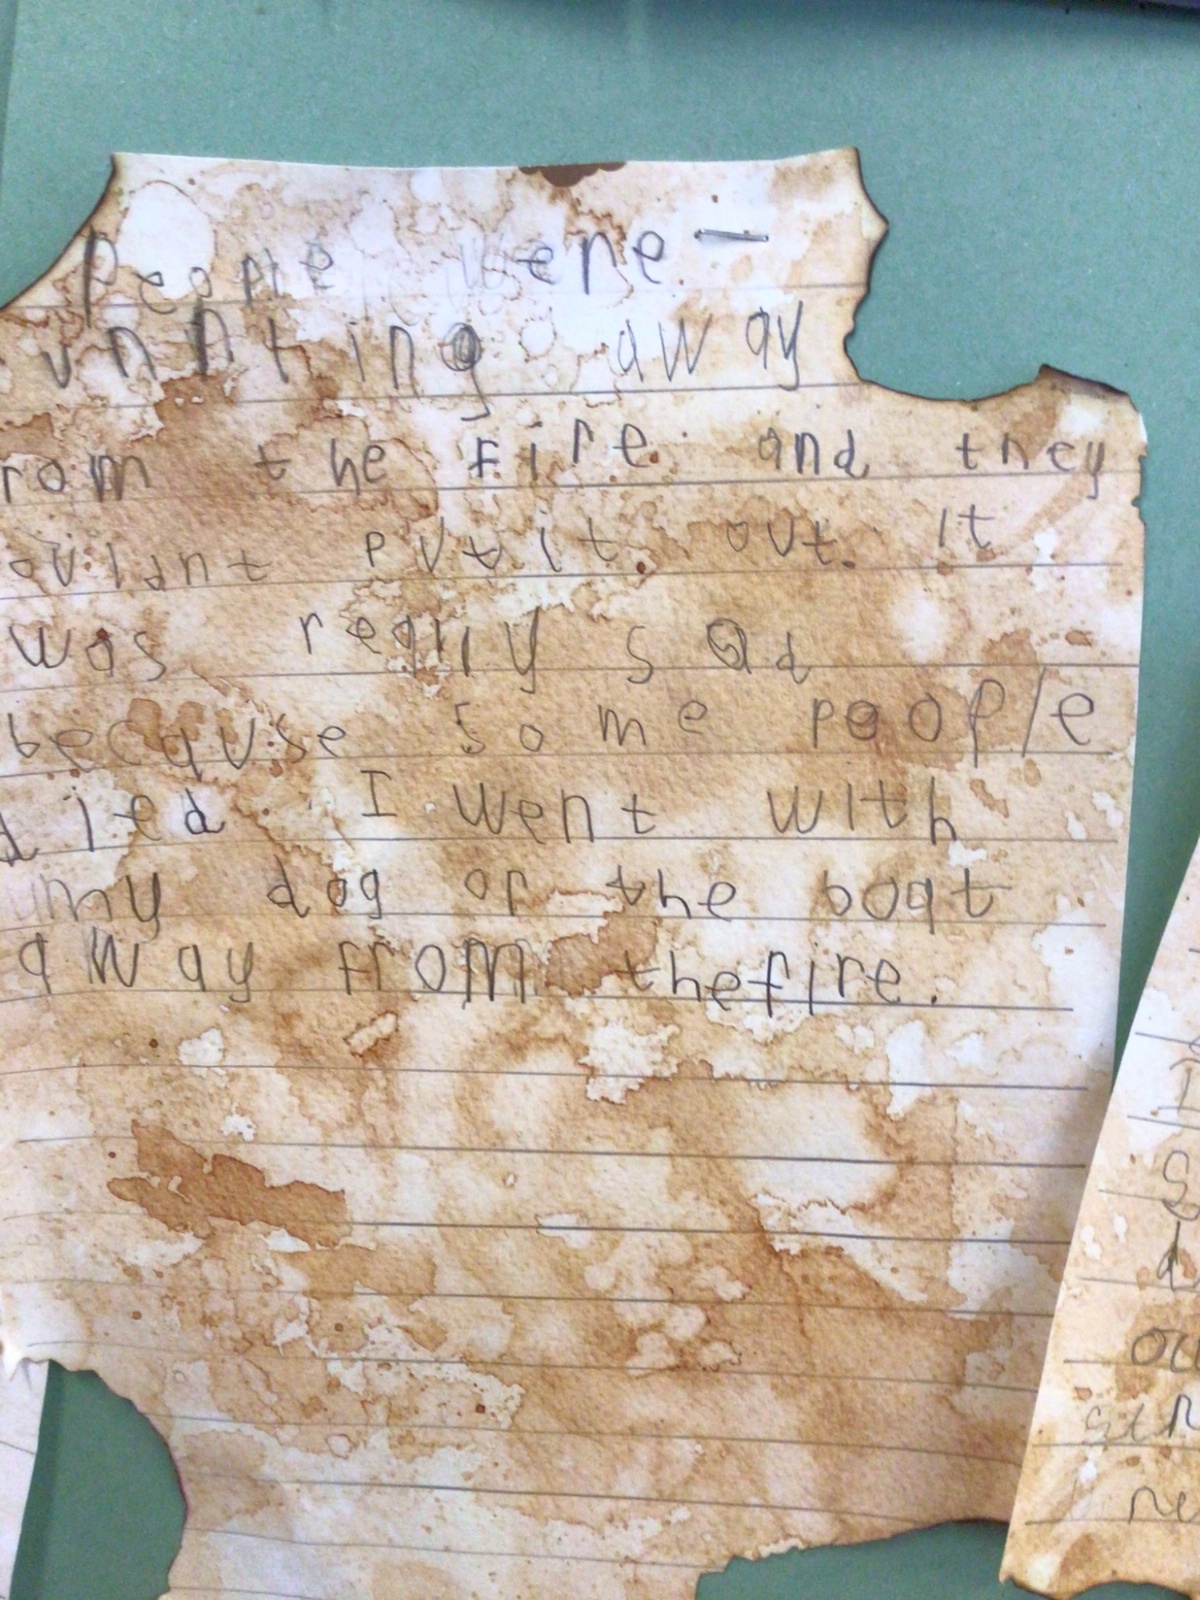 People were
unnting away
rom the fire. and they
ouldnt put it. out. It
was really sad
because some poople
died I went with
my dog of the boat
away from thefire.